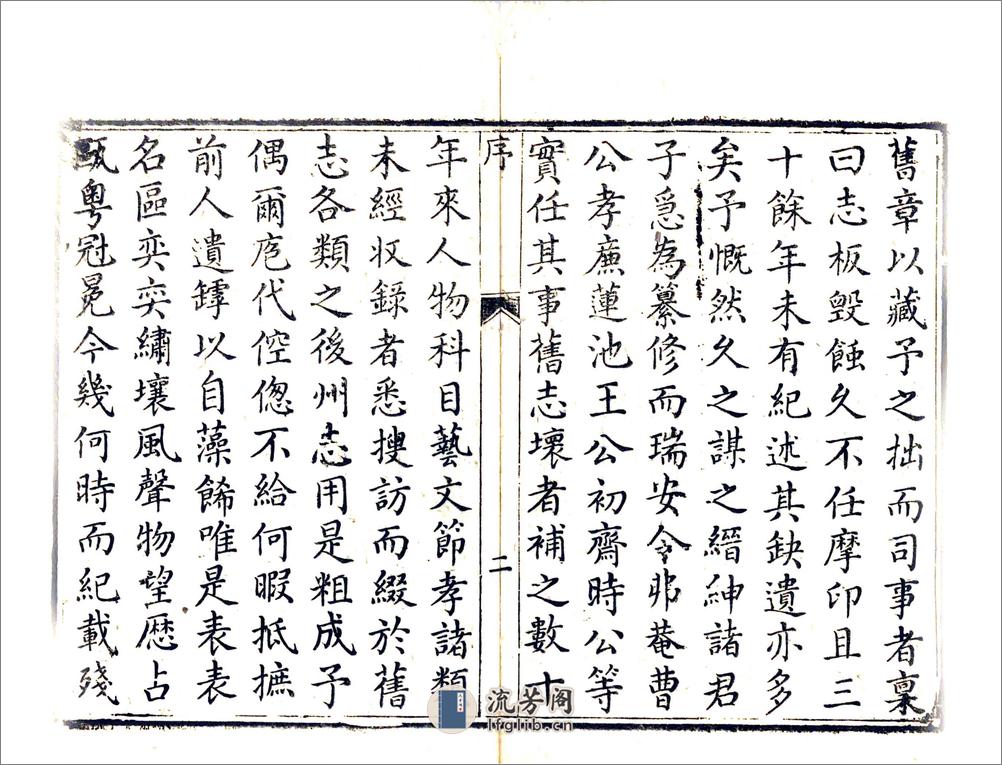 舊章以藏予之拙而司事者稟
曰志板毀蝕久不任摩印且三
十餘年未有紀述其缺遺亦多
矣予慨然久之謀之縉紳諸君
子爰為纂修而瑞安令非菴曹
公孝廉蓮池王公初齋時公等
實任其事舊志壞者補之數十
序
二
年來人物科目藝文節孝諸類
未經收錄者悉搜訪而綴於舊
志各類之後州志用是粗成予
偶爾庖代倥偬不給何暇抵摭
前人遺罅以自藻餙唯是表表
名區奕奕繡壤風聲物望歷占
甌粵冠冕今幾何時而紀載殘
流芳阁
lfglib.cn